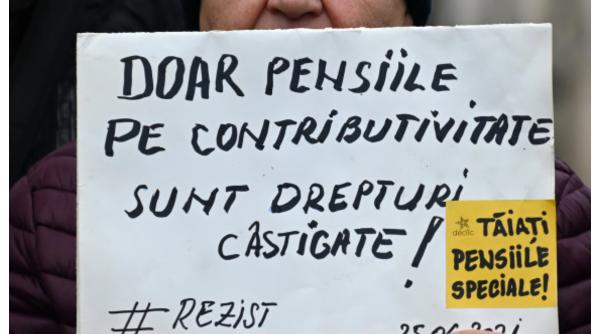 DOAR PENSIILE
PE CONTRIBUTIVITATE
SUNT DREPTURI
CÂSTIGATE!
declic
TĂIAȚI
PENSIILE
SPECIALE!
#REZIST